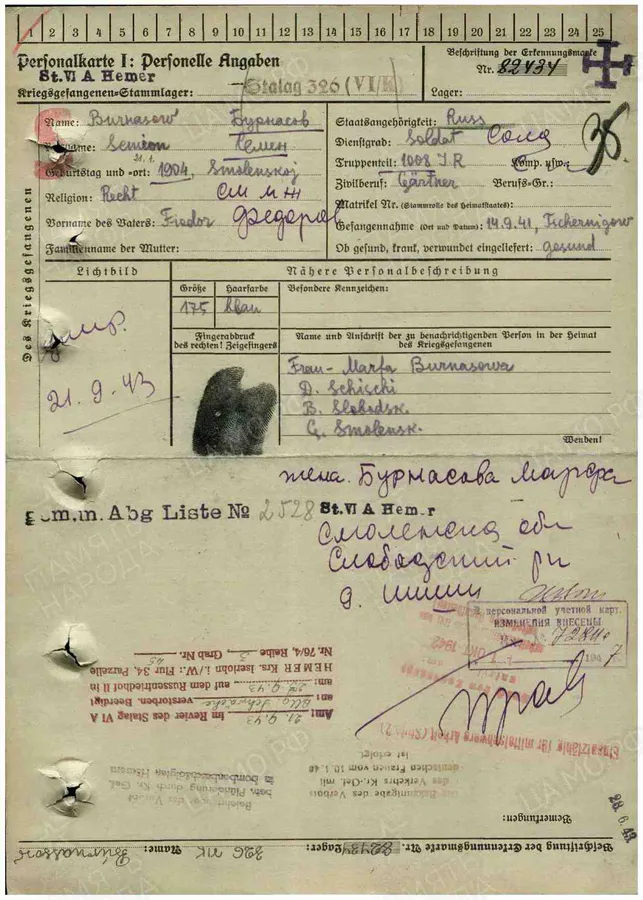 1 2 3 4 5 6 7 8 9 10 11 12 13 14 15 16 17 18 19 20 21 22 23 24 25
Personalkarte I: Personelle Angaben
St.VI A Hemer
Kriegsgefangenen-Stammlager: Stalag 326 (VI/K)
Beschriftung der Erkennungsmarke
Nr. 82434
Lager:
Des Kriegsgefangenen
Name: Burnasow Бурнасов
Semion Семен
Geburtstag und -ort: 21.1. 1904, Smolenskoj
Religion: Recht
Vorname des Vaters: Fiodor
Familienname der Mutter:
Staatsangehörigkeit: Russ
Dienstgrad: Soldat Солд
Truppenteil: 1008 I.R Komp. usw.:
Zivilberuf: Gärtner Berufs-Gr.:
Matrikel Nr. (Stammrolle des Heimatstaates):
Gefangennahme (Ort und Datum): 14.9.41, Tschernigow
Ob gesund, krank, verwundet eingeliefert: gesund
35
Lichtbild
умр.
21.9.43
Nähere Personalbeschreibung
Größe Haarfarbe Besondere Kennzeichen:
175 blau
Fingerabdruck
des rechten! Zeigefingers
Name und Anschrift der zu benachrichtigenden Person in der Heimat
des Kriegsgefangenen
Frau- Marfa Burnasowa
D. Schischi
B. Slobodsk.
G. Smolensk.
Wenden!
жена. Бурнасова Марфа
Abg Liste № 2528 St.VI A Hemer
Смоленская обл
Слободский рн
д. Шиши
В персональной учетной карт.
ИЗМЕНЕНИЯ ВНЕСЕНЫ
194 7
Am: 21.9.43 im Revier des Stalag VI A
an: verstorben. Beerdigt
am: auf dem Russenfriedhof II in
HEMER Krs. Iserlohn i./W.: Flur 34, Parzelle
Nr. 76/4 Reihe 3 Grab Nr. 45
Einsatzfähig für mittelschwere Arbeit
Belehrung über das Verbot
betr. Plünderung durch Kr. Gef.
in bombenbeschädigten Häusern
Die Bekanntgabe des Verbots
des Verkehrs Kr.-Gef. mit
deutschen Frauen vom 10.1.40
ist erfolgt.
28.6.43
Bemerkungen:
Beschriftung der Erkennungsmarke Nr. 82434 Lager: 326 VI K Name: Burnassow